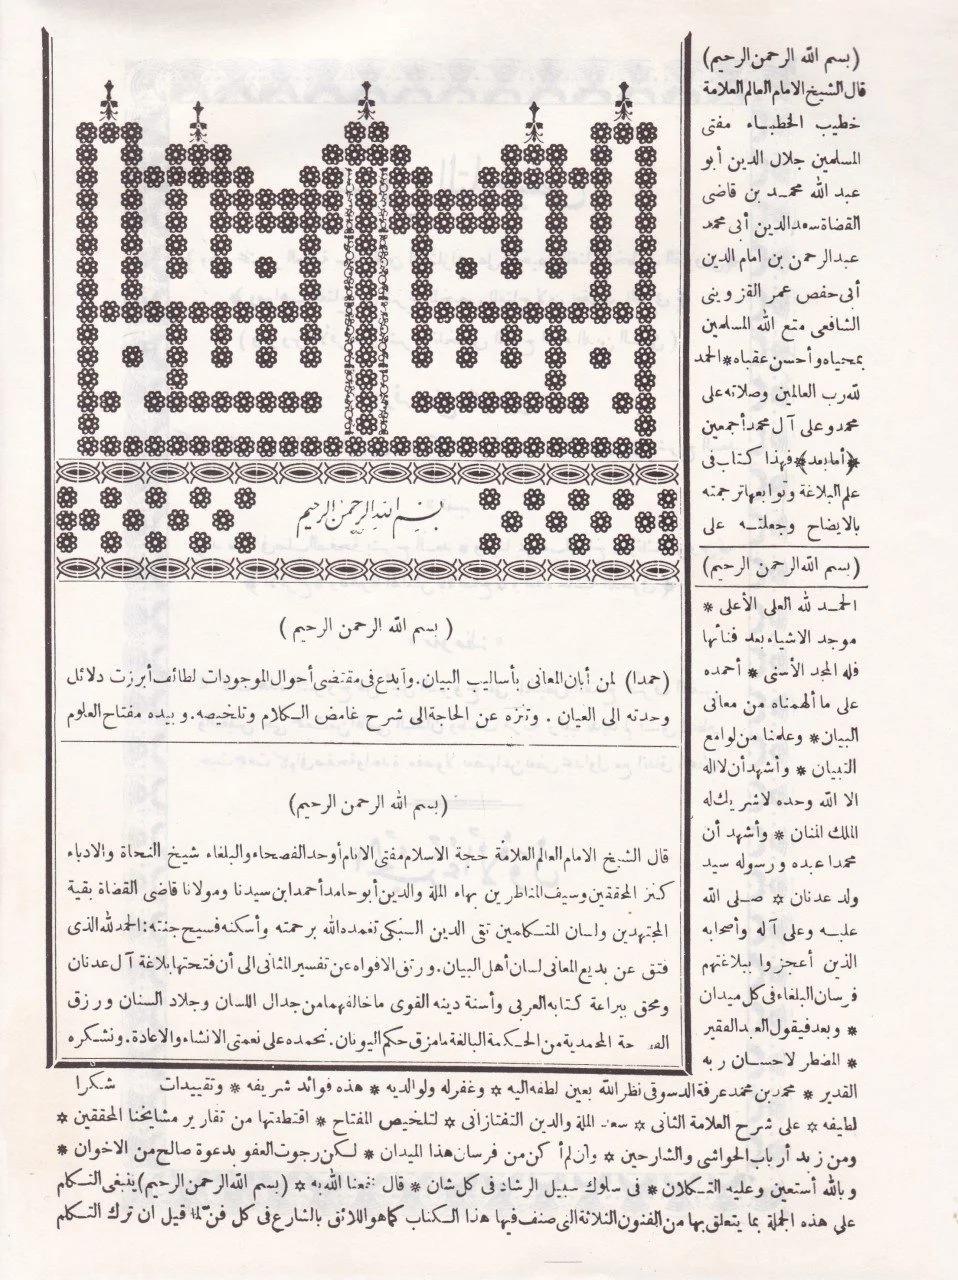 (بسم الله الرحمن الرحيم)
قال الشيخ الامام العالم العلامة
خطيب الخطباء مفتى
المسلمين جلال الدين أبو
عبد الله محمد بن قاضى
القضاة سعد الدين أبى محمد
عبدالرحمن بن امام الدين
أبى حفص عمر القزوينى
الشافعى متع الله المسلمين
بمحياه وأحسن عقباه * الحمد
لله رب العالمين وصلاته على
محمد وعلى آل محمد أجمعين
﴿أما بعد﴾ فهذا كتاب فى
علم البلاغة وتوابعها ترجمته
بالايضاح وجعلته على
(بسم الله الرحمن الرحيم)
الحمد لله العلى الأعلى *
موجد الاشياء بعد فنائها
فله المجد الأسنى * أحمده
على ما ألهمناه من معانى
البيان * وعلمنا من لوامع
التبيان * وأشهد أن لا اله
الا الله وحده لا شريك له
الملك المنان * وأشهد أن
محمدا عبده ورسوله سيد
ولد عدنان * صلى الله
عليه وعلى آله وأصحابه
الذين أعجزوا ببلاغتهم
فرسان البلغاء فى كل ميدان
* وبعد فيقول العبد الفقير
* المضطر لاحسان ربه
بسم الله الرحمن الرحيم
( بسم الله الرحمن الرحيم )
(حمدا) لمن أبان المعانى بأساليب البيان. وأبدع فى مقتضى أحوال الموجودات لطائف أبرزت دلائل
وحدته الى العيان . وتنزه عن الحاجة الى شرح غامض الكلام وتلخيصه. وبيده مفتاح العلوم
(بسم الله الرحمن الرحيم)
قال الشيخ الامام العالم العلامة حجة الاسلام مفتى الانام أوحد الفصحاء والبلغاء شيخ النحاة والادباء
كنز المحققين وسيف المناظرين بهاء الملة والدين أبو حامد أحمد ابن سيدنا ومولانا قاضى القضاة بقية
المجتهدين ولسان المتكلمين تقى الدين السبكى تغمده الله برحمته وأسكنه فسيح جنته : الحمد لله الذى
فتق عن بديع المعانى لسان أهل البيان. ورتق الافواه عن تفسير المثانى الى أن فتحتها بلاغة آل عدنان
ومحق ببراعة كتابه العربى وأسنة دينه القوى ما خالفهما من جدال اللسان وجلاد السنان ورزق
حة المحمدية من الحكمة البالغة ما مزق حكم اليونان. نحمده على نعمتى الانشاء والاعادة. ونشكره
القدير * محمد بن محمد عرفة الدسوقى نظر الله بعين لطفه اليه * وغفر له ولوالديه * هذه فوائد شريفه * وتقييدات شكرا
لطيفه * على شرح العلامة الثانى * سعد الملة والدين التفتازانى * لتلخيص المفتاح * اقتطفتها من تقارير مشايخنا المحققين *
ومن زبد أرباب الحواشى والشارحين * وان لم أكن من فرسان هذا الميدان * لكن رجوت العفو بدعوة صالح من الاخوان *
وبالله أستعين وعليه التكلان * فى سلوك سبيل الرشاد فى كل شان * قال نفعنا الله به * (بسم الله الرحمن الرحيم) ينبغى التكلم
على هذه الجملة بما يتعلق بها من الفنون الثلاثة التى صنف فيها هذا الكتاب كما هو اللائق بالشارع فى كل فن لما قيل ان ترك التكلم